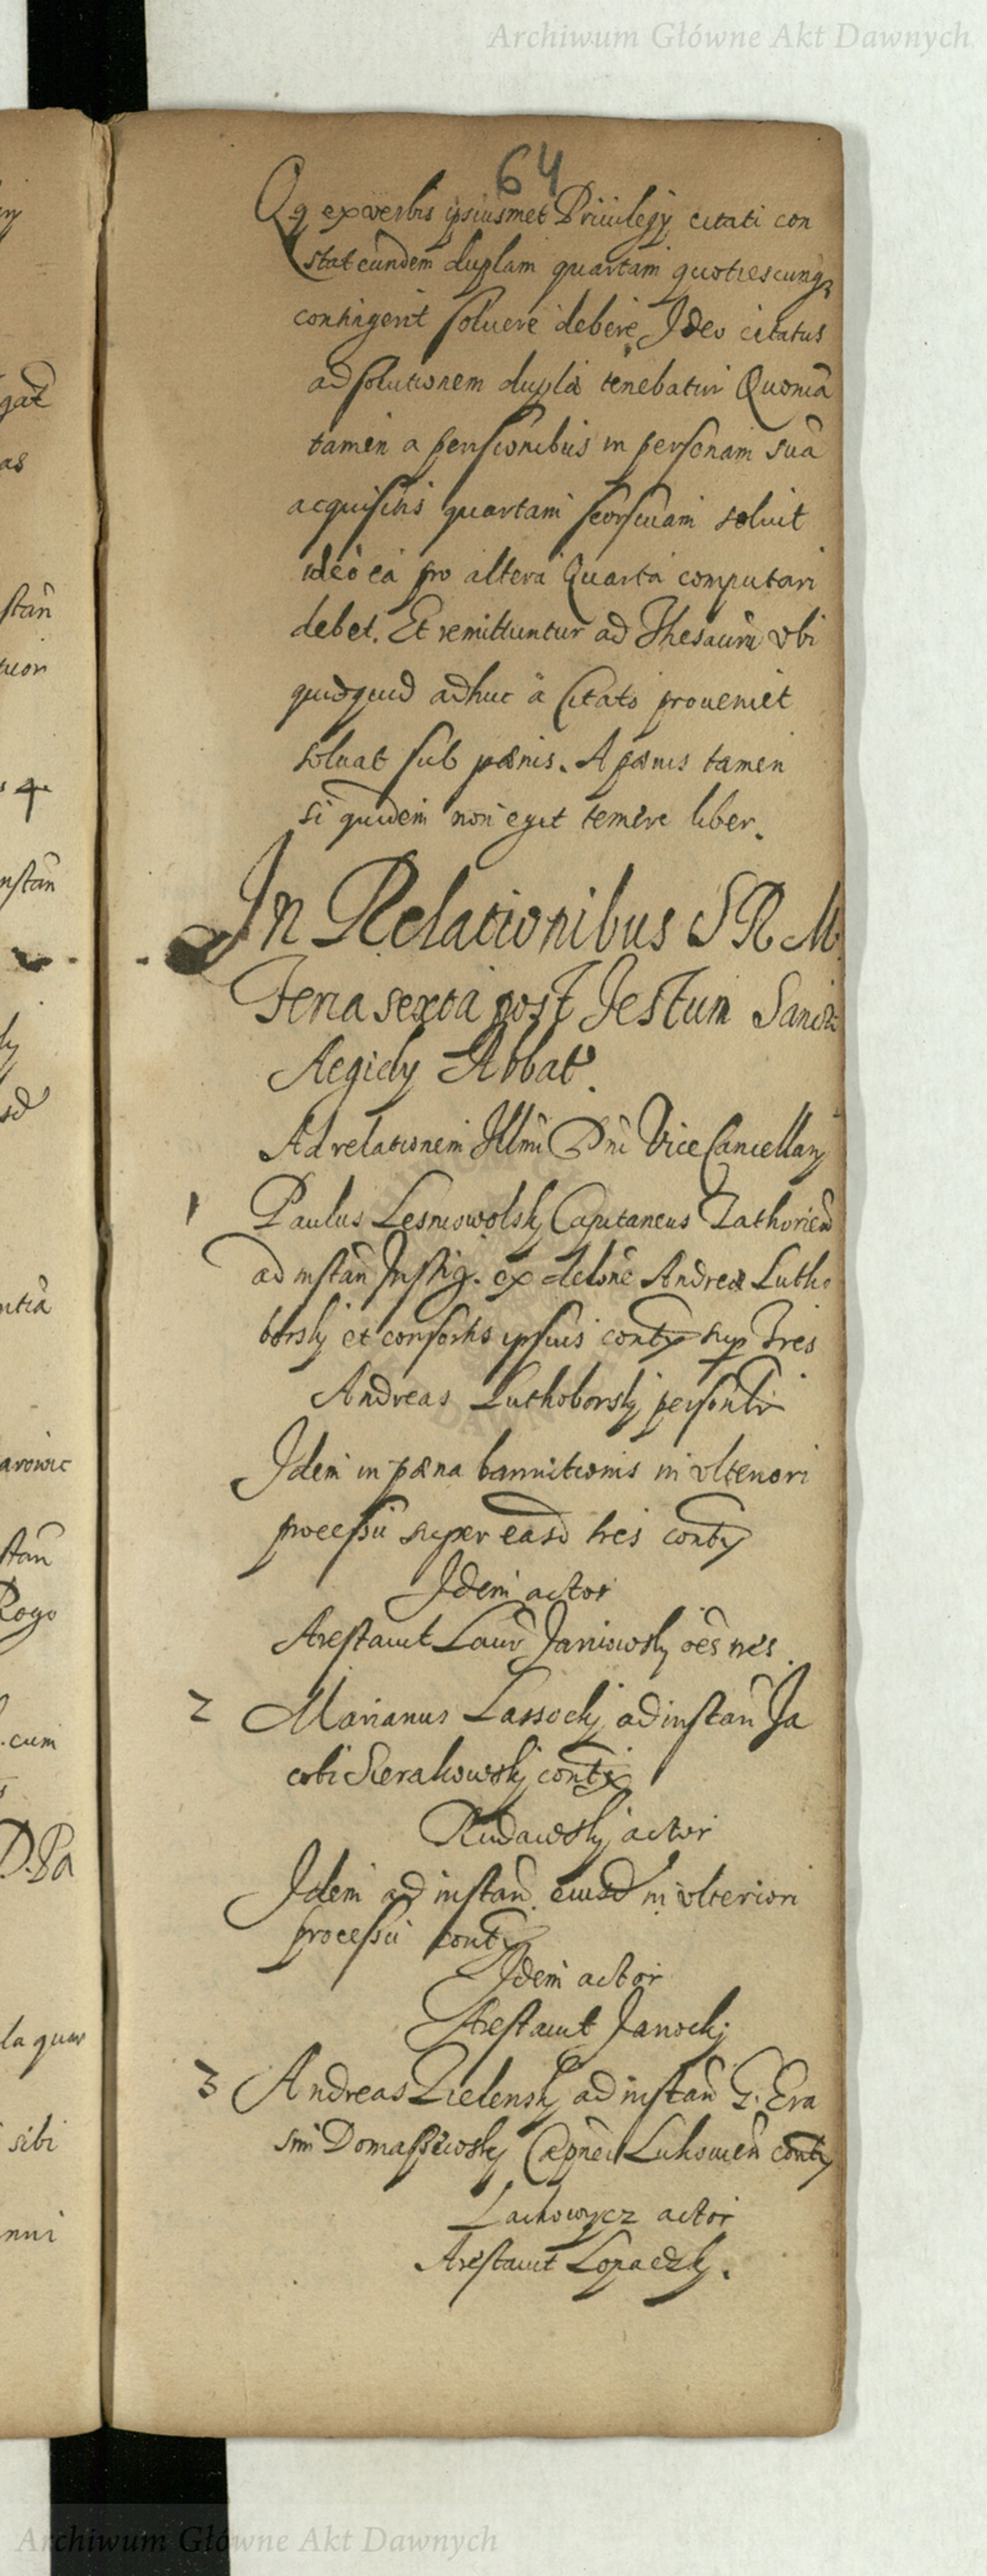 Archiwum Główne Akt Dawnych
64
Qq ex verbis ipsiusmet Priuilegij citati con
stat eundem duplam quartam quotiescunq
contingerit soluere debere, Ideo citatus
ad solutionem dupla tenebatur Quoniã
tamen a pensionibus in personam suã
acquisitis quartam seorsiuam soluit
ideo ea pro altera Quarta computari
debet. Et remittuntur ad Thesaurũ vbi
quidquid adhuc à Citato proueniet
soluat sub pænis. A pænis tamen
si quidem non egit temere liber.
In Relationibus S R M
Feria sexta post Festum Sancti
Aegidij Abbat.
Ad relationem Illmi Dni Vice Cancellarij
1 Paulus Lesniowolskj Capitaneus
ad instan Instig. ex delone Andreæ Lutho
borskj et consortis ipsius contx sup tres
Andreas Luthoborskj personlr
Idem in pæna bannitionis in vlteriori
processu super easd tres contx
Idem actor
Arestauit Laur Janiowskj oes tres
2 Marianus Lassockj ad instan Ja
cobi Sierakowskj contx
Rudawskj actor
Idem ad instan eiusd in vlteriori
processu contx
Idem actor
Arestauit Janockj
3 Andreas Zielenskj ad instan G. Era
smi Domassewskj Capnei Lukouien contx
Lachowycz actor
Arestauit Lopaczkj.
gat
as
stan
nstan
arowic
stan
Rogo
cum
D. Pa
la quar
sibi
Archiwum Główne Akt Dawnych